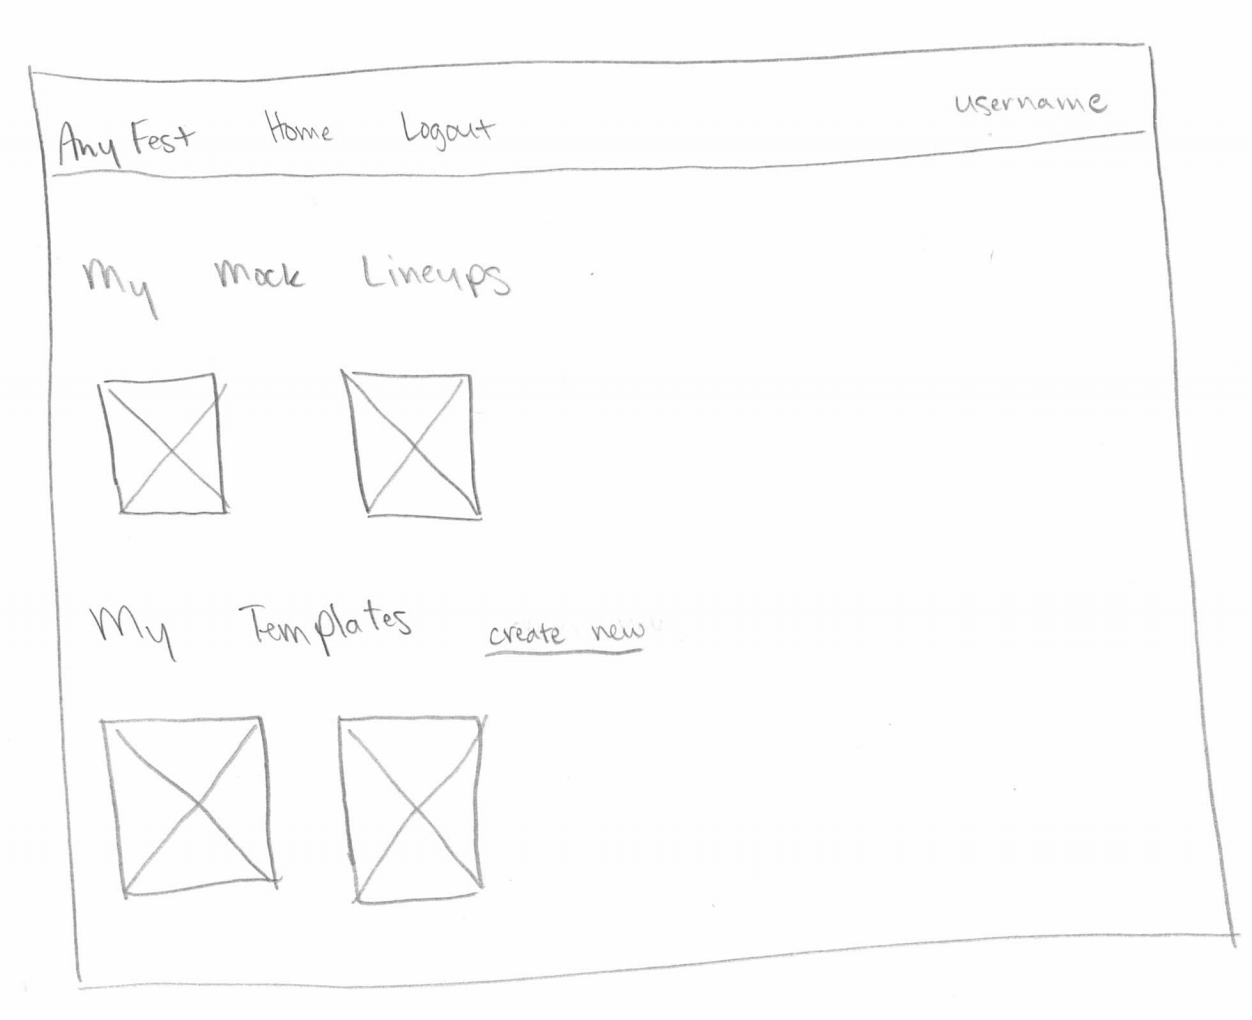 Any Fest Home Logout username
My Mock Lineups
My Templates create new